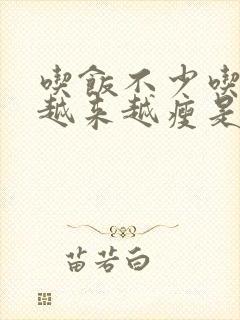 喫飯不少喫
越来越瘦是
苗若白